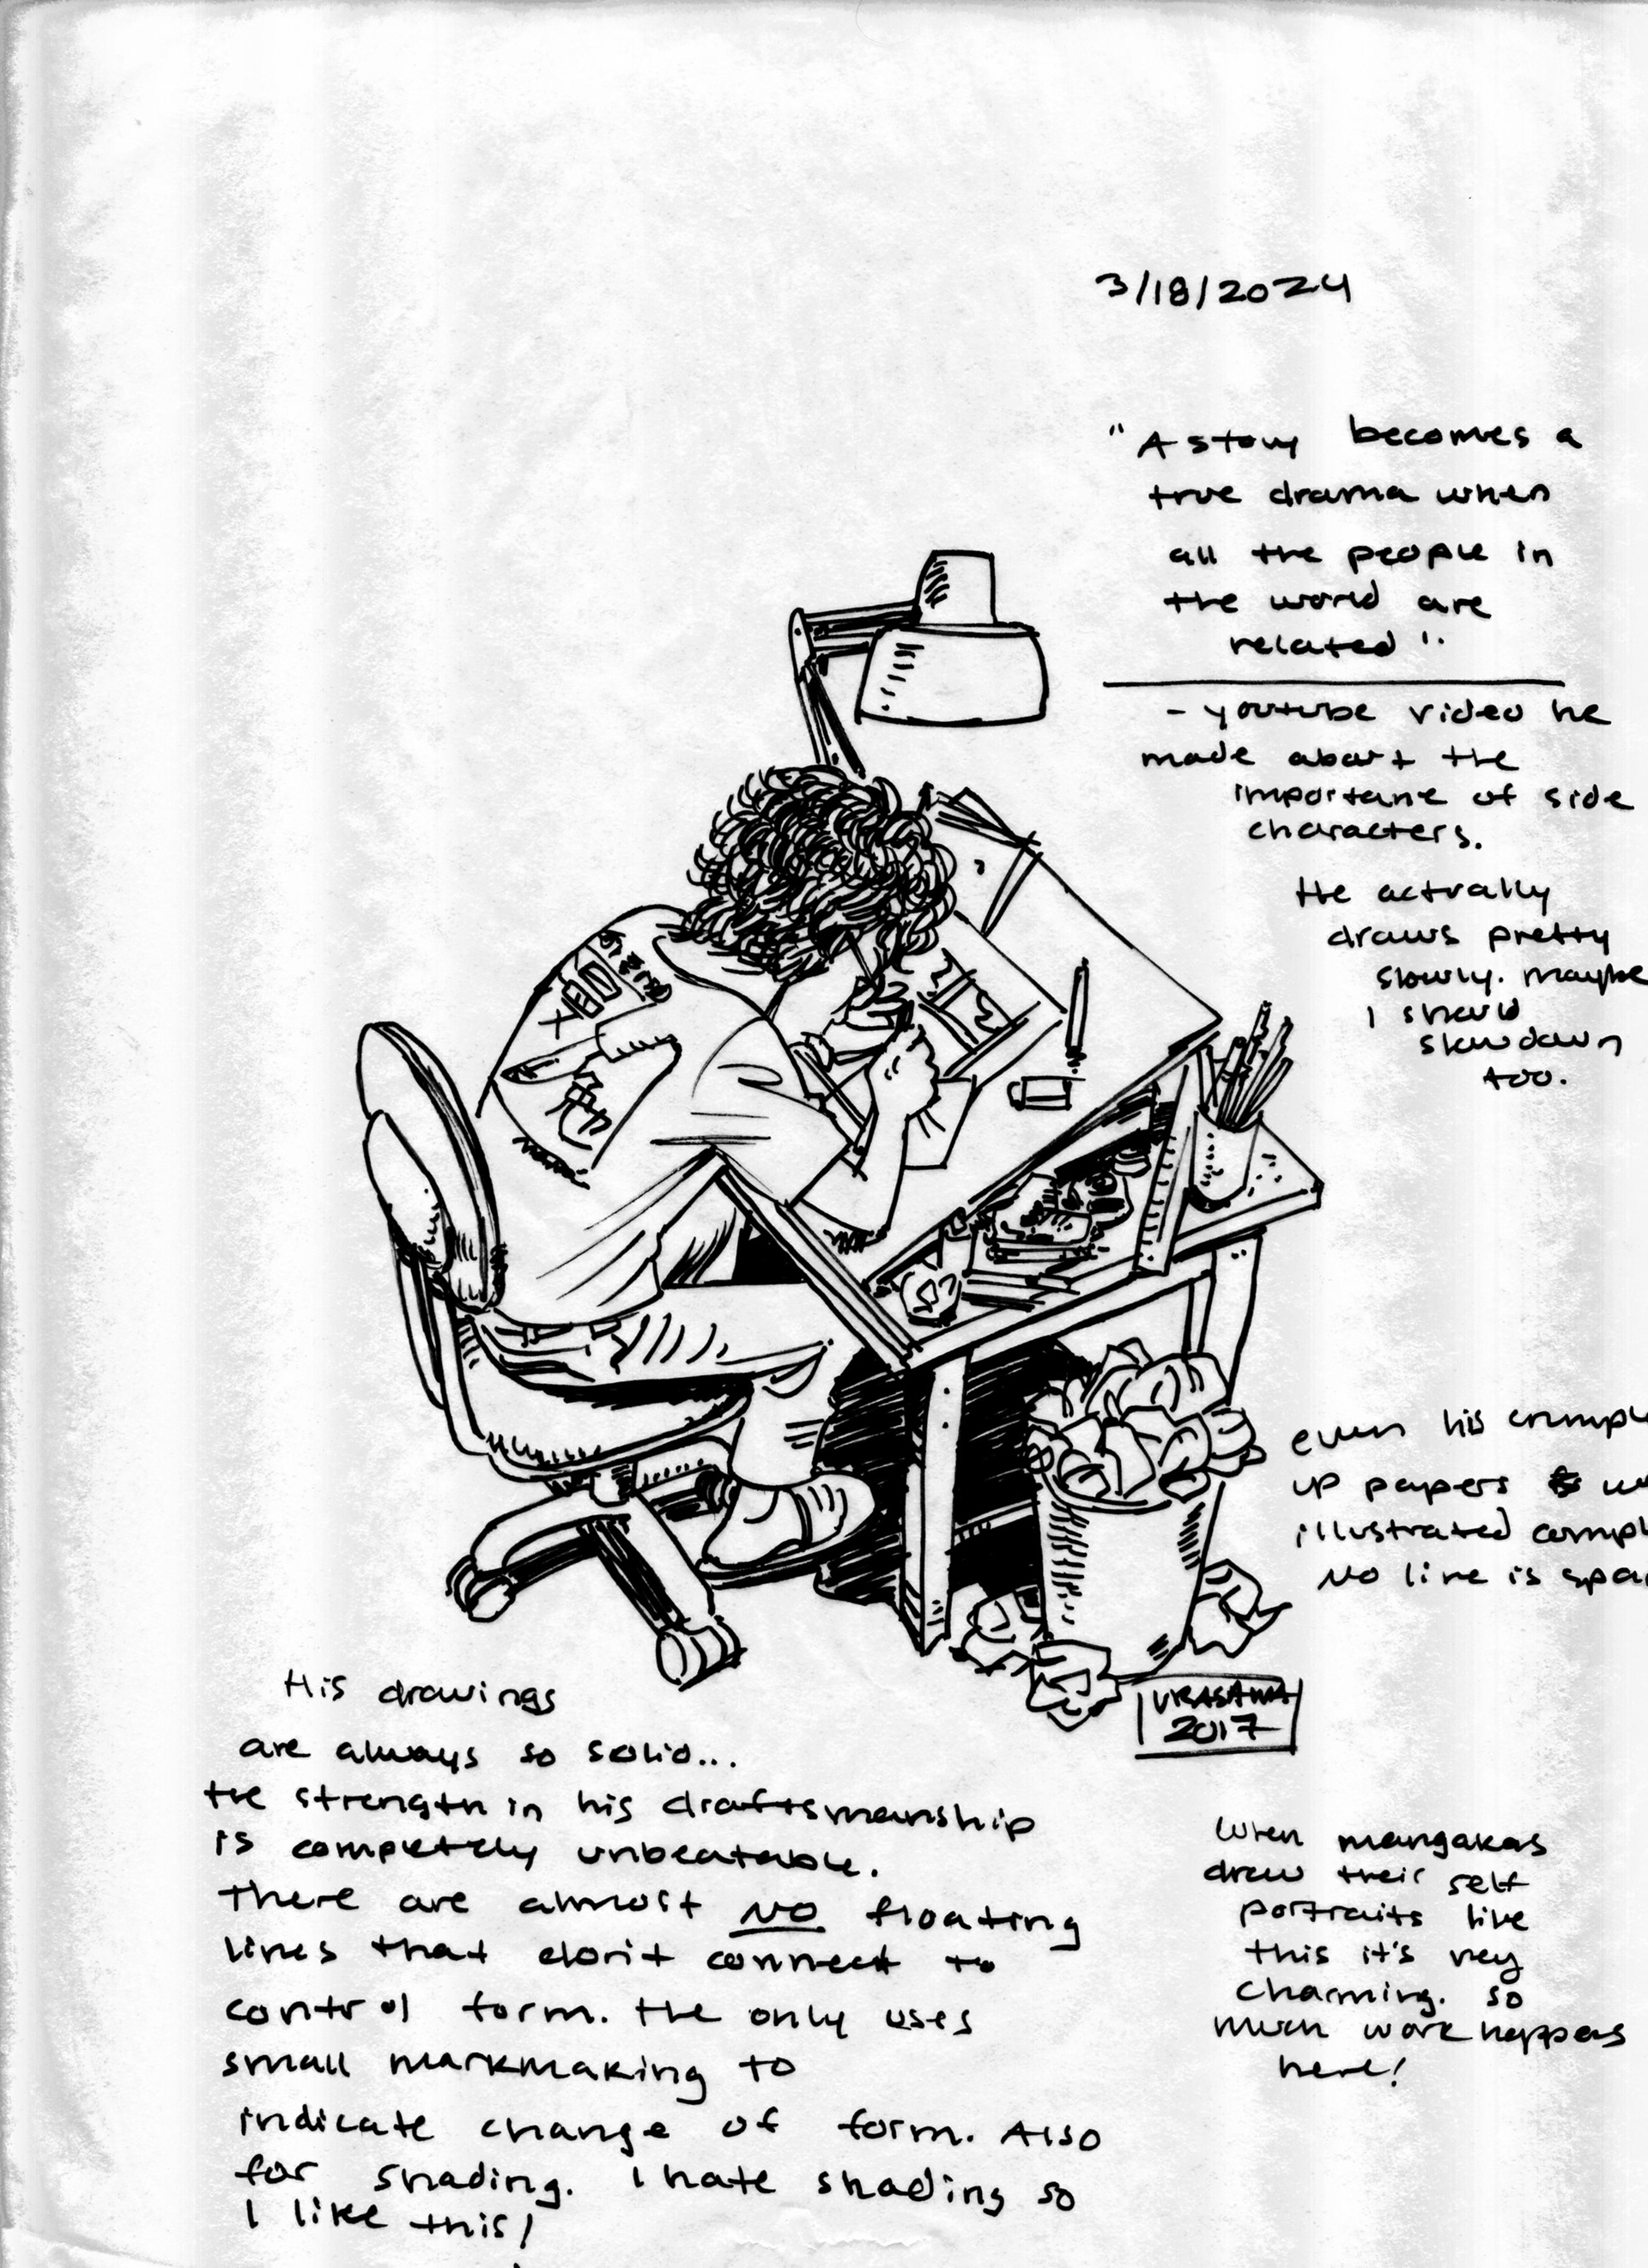 3/18/2024
"A story becomes a
true drama when
all the people in
the world are
related".
- youtube video he
made about the
importane of side
characters.
He actually
draws pretty
slowly. maybe
I should
slowdown
too.
even his crumple
up papers
illustrated
NO line is
URASAWA
2017
His drawings
are always so solid...
the strength in his draftsmanship
is completely unbeatable.
There are almost NO floating
lines that don't connect to
control form. the only uses
small markmaking to
indicate change of form. Also
for shading. I hate shading so
I like this!
When mangakas
draw their self
portraits like
this it's very
charming. so
much work happens
here!